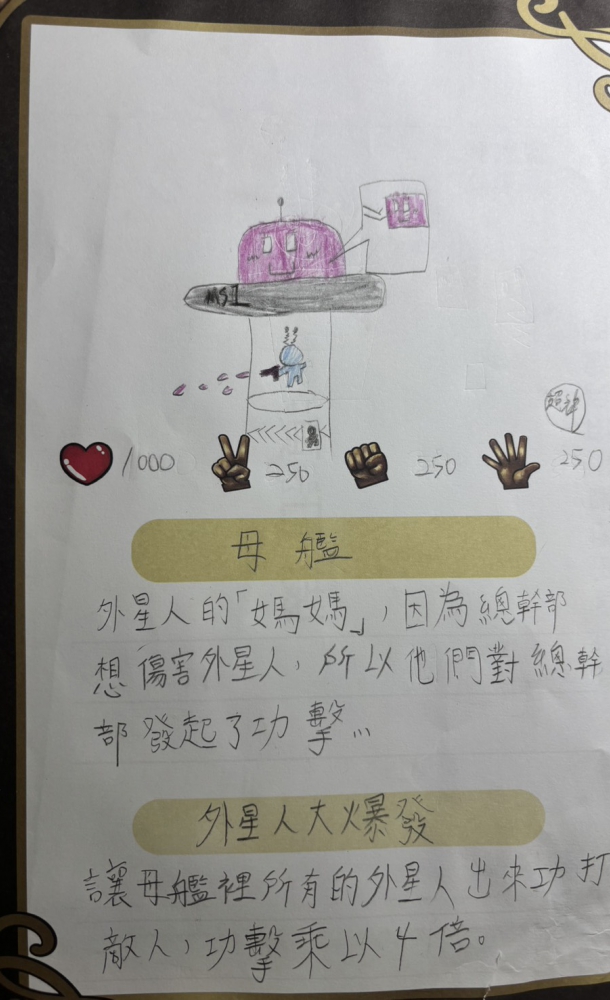 MSI
超神
1000
250
250
250
母艦
外星人的「媽媽」，因為總幹部
想傷害外星人，所以他們對總幹
部發起了功擊…
外星人大爆發
讓母艦裡所有的外星人出來功打
敵人，功擊乘以4倍。